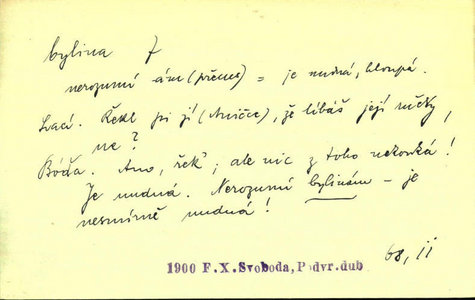 bylina 7
nerozumí
= je nudná, hloupá.
Řekl jsi jí (Aničce), že líbáš její ručky,
ne?
Bóďa. Ano, řek'; ale nic z toho nekouká!
Je nudná. Nerozumí bylinám – je
nesmírně nudná!
1900 F.X.Svoboda, Podvr.dub
68, II